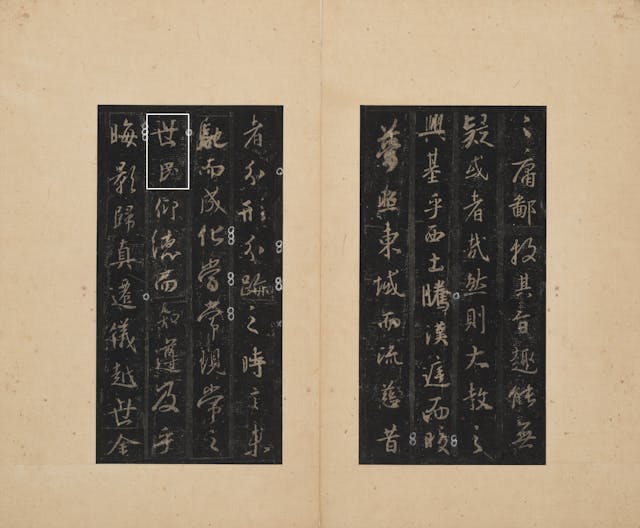 〻庸鄙投其旨趣能無
疑或者哉然則大教之
興基乎西土騰漢庭而皎
夢照東域而流慈昔
者分形分跡之時言未
馳而成化當常現常之
世民仰德而知遵及乎
晦影歸真遷儀越世金